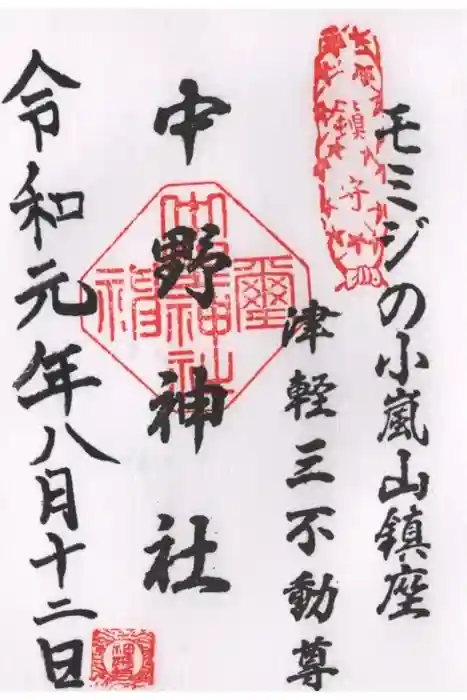 モミジの小嵐山鎮座
津軽三不動尊
鎮守
中野神社
令和元年八月十二日